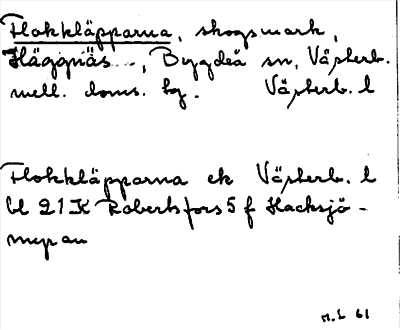 Flokkläpparna, skogsmark,
Häggnäs, Bygdeå sn, Västerb.
mell. doms. hg. Västerb. l
Flokkläpparna ek Västerb. l
bl 21K Robertsfors 5 f Hacksjö-
myran
M.L 61